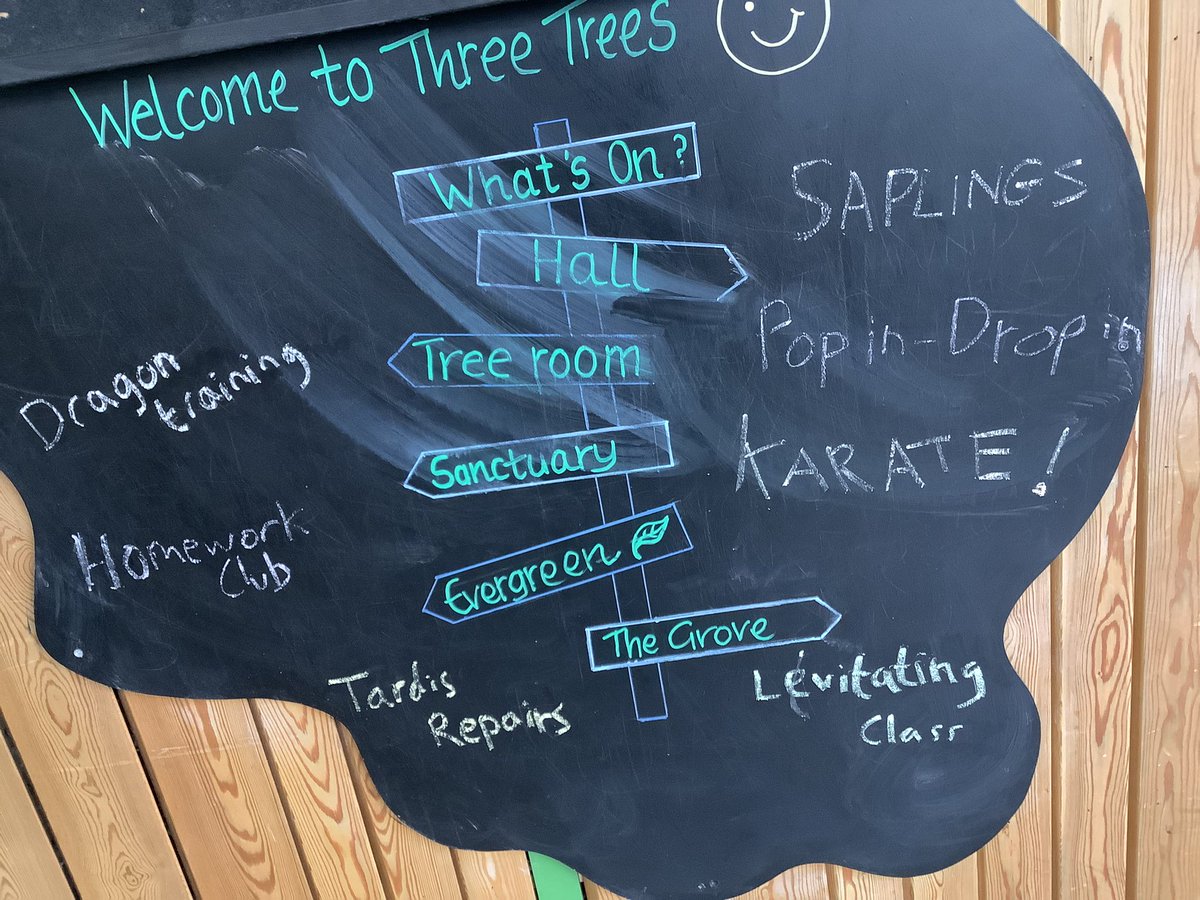 Welcome to Three Trees
What's On?
Hall
Tree room
Sanctuary
Evergreen
The Grove
SAPLINGS
Pop in-Drop in
KARATE!
Dragon
training
Homework
Club
Tardis
Repairs
Levitating
Class